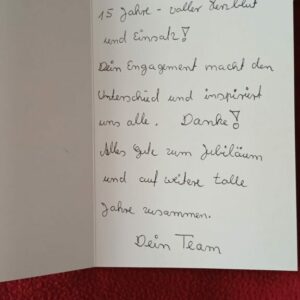 15 Jahre - voller Herzblut
und Einsatz!
Dein Engagement macht den
Unterschied und inspiriert
uns alle. Danke!
Alles Gute zum Jubiläum
und auf weitere tolle
Jahre zusammen.
Dein Team